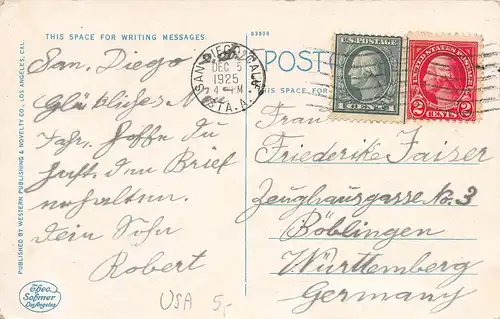 THIS SPACE FOR WRITING MESSAGES.
53938
POSTC
THIS SPACE FOR
SAN DIEGO CALIF.
DEC 5
4-PM
1925
STA. A.
U.S. POSTAGE
1 CENT 1
UNITED STATES POSTAGE
2 CENTS 2
PUBLISHED BY WESTERN PUBLISHING & NOVELTY CO., LOS ANGELES, CAL.
San Diego
Glückliches N
Jahr. Hoffe Du
hast den Brief
erhalten.
Dein Sohn
Robert
Frau
Friederike Faiser
Zeughausgasse No. 3
Böblingen
Württemberg
Germany
Theo. Sohmer
Los Angeles
USA 5,-